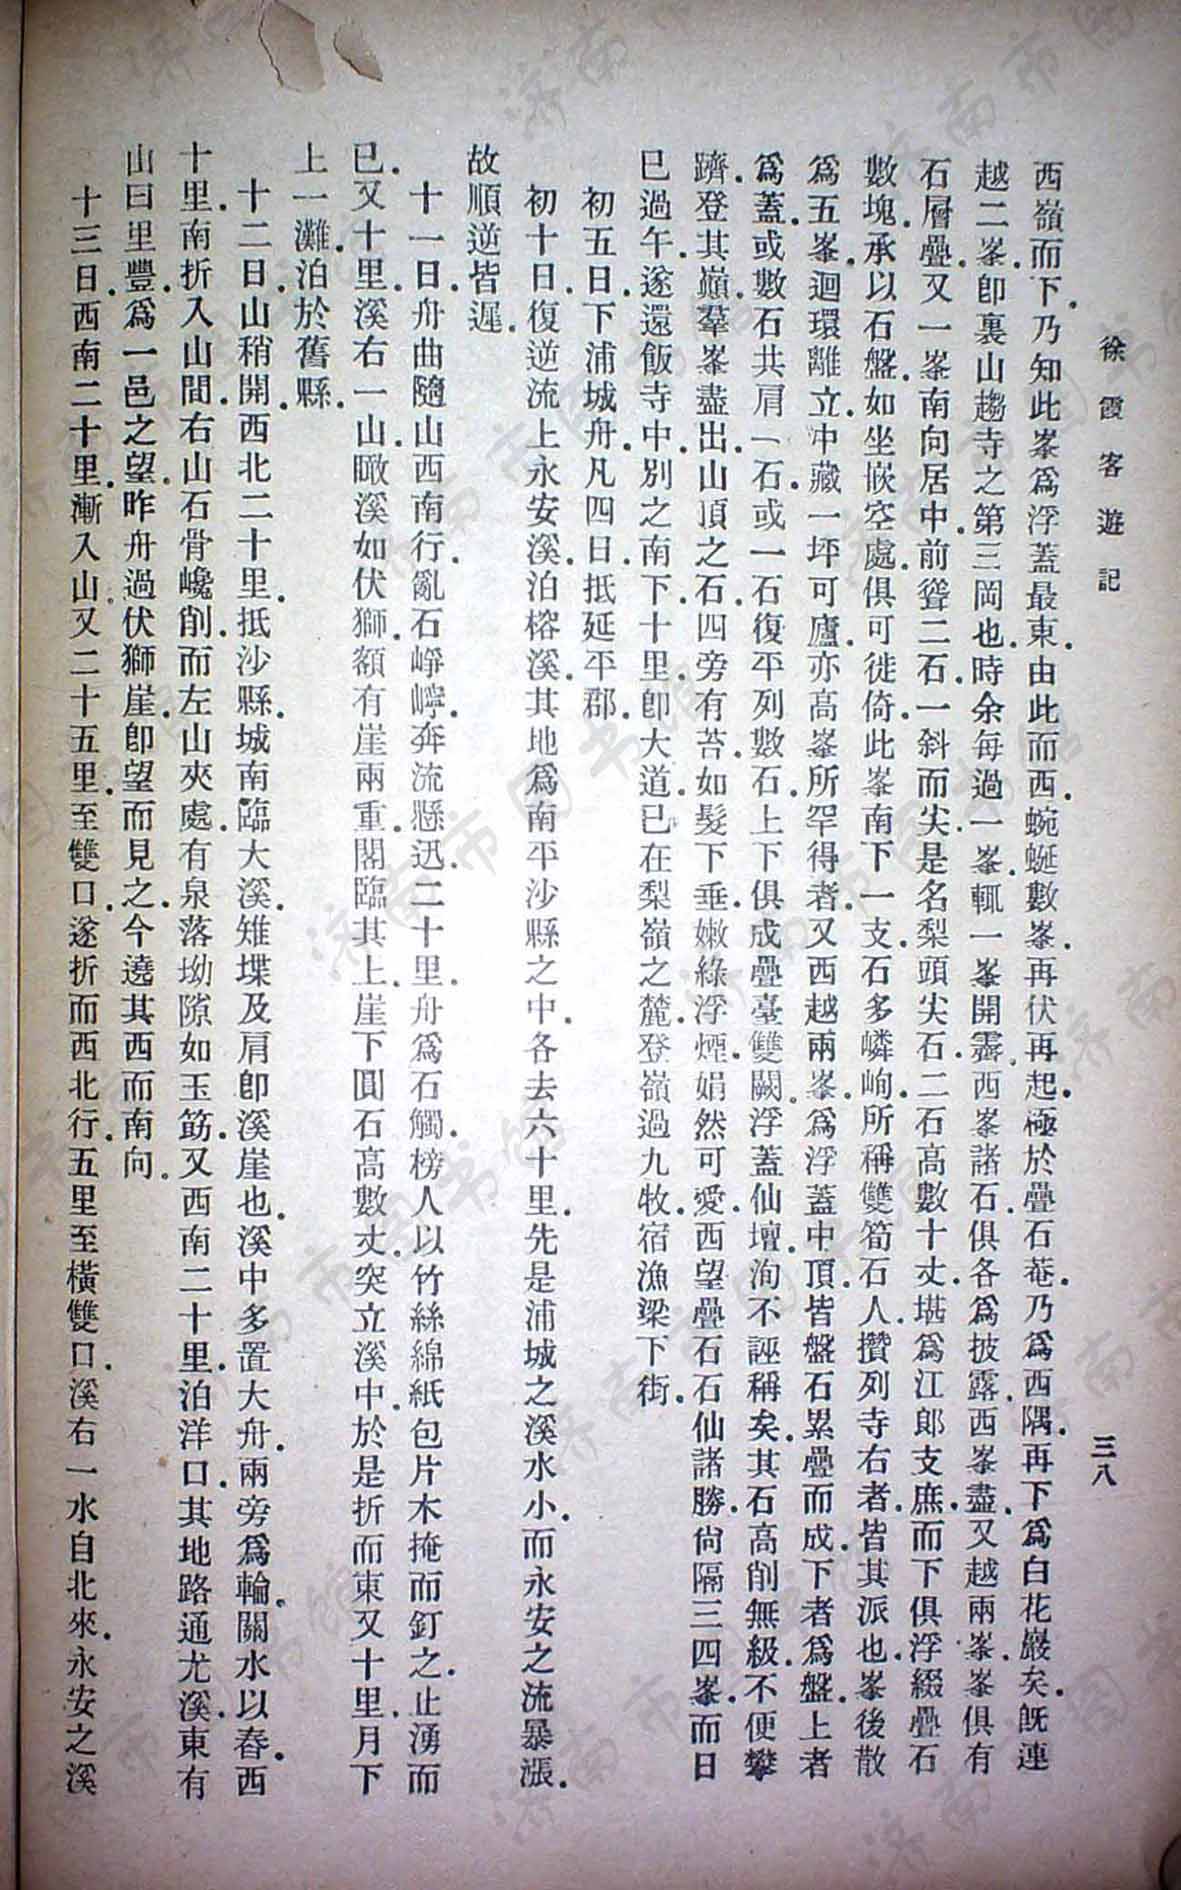 徐霞客遊記
三八
西嶺而下．乃知此峯爲浮蓋最東．由此而西．蜿蜒數峯．再伏再起．極於疊石菴．乃爲西隅．再下爲白花巖矣．旣連
越二峯．卽裏山趨寺之第三岡也．時余每過一峯．輒一峯開霽．西峯諸石．俱各爲披露．西峯盡．又越兩峯．峯俱有
石層疊．又一峯南向居中．前聳二石．一斜而尖．是名梨頭尖石．二石高數十丈．堪爲江郎支庶．而下俱浮綴疊石
數塊．承以石盤．如坐嵌空處．俱可徙倚．此峯南下一支．石多嶙峋．所稱雙筍石人．攢列寺右者．皆其派也．峯後散
爲五峯．迴環離立．中藏一坪可廬．亦高峯所罕得者．又西越兩峯．爲浮蓋中頂．皆盤石累疊而成．下者爲盤．上者
爲蓋．或數石共肩一石．或一石復平列數石．上下俱成疊臺雙闕．浮蓋仙壇．洵不誣稱矣．其石高削無級．不便攀
躋．登其巔．羣峯盡出．山頂之石．四旁有苔．如髮下垂．嫩綠浮煙．娟然可愛．西望疊石石仙諸勝．尙隔三四峯．而日
已過午．遂還飯寺中．別之南下．十里卽大道．已在梨嶺之麓．登嶺．過九牧．宿漁梁下街．
初五日．下浦城舟．凡四日．抵延平郡．
初十日．復逆流上永安溪．泊榕溪．其地爲南平沙縣之中．各去六十里．先是浦城之溪水小．而永安之流暴漲．
故順逆皆遲．
十一日．舟曲隨山西南行．亂石崢嶸．奔流懸迅．二十里．舟爲石觸．榜人以竹絲綿紙包片木掩而釘之．止湧而
已．又十里．溪右一山．瞰溪如伏獅．額有崖兩重．閣臨其上．崖下圓石高數丈．突立溪中．於是折而東．又十里．月下
上一灘．泊於舊縣．
十二日．山稍開．西北二十里．抵沙縣．城南臨大溪．雉堞及肩．卽溪崖也．溪中多置大舟．兩旁爲輪．關水以舂．西
十里．南折入山間．右山石骨巉削．而左山夾處．有泉落坳隙如玉筯．又西南二十里．泊洋口．其地路通尤溪．東有
山曰里豐．爲一邑之望．昨舟過伏獅崖．卽望而見之．今遶其西而南向．
十三日．西南二十里．漸入山．又二十五里．至雙口．遂折而西北行．五里至橫雙口．溪右一水自北來．永安之溪